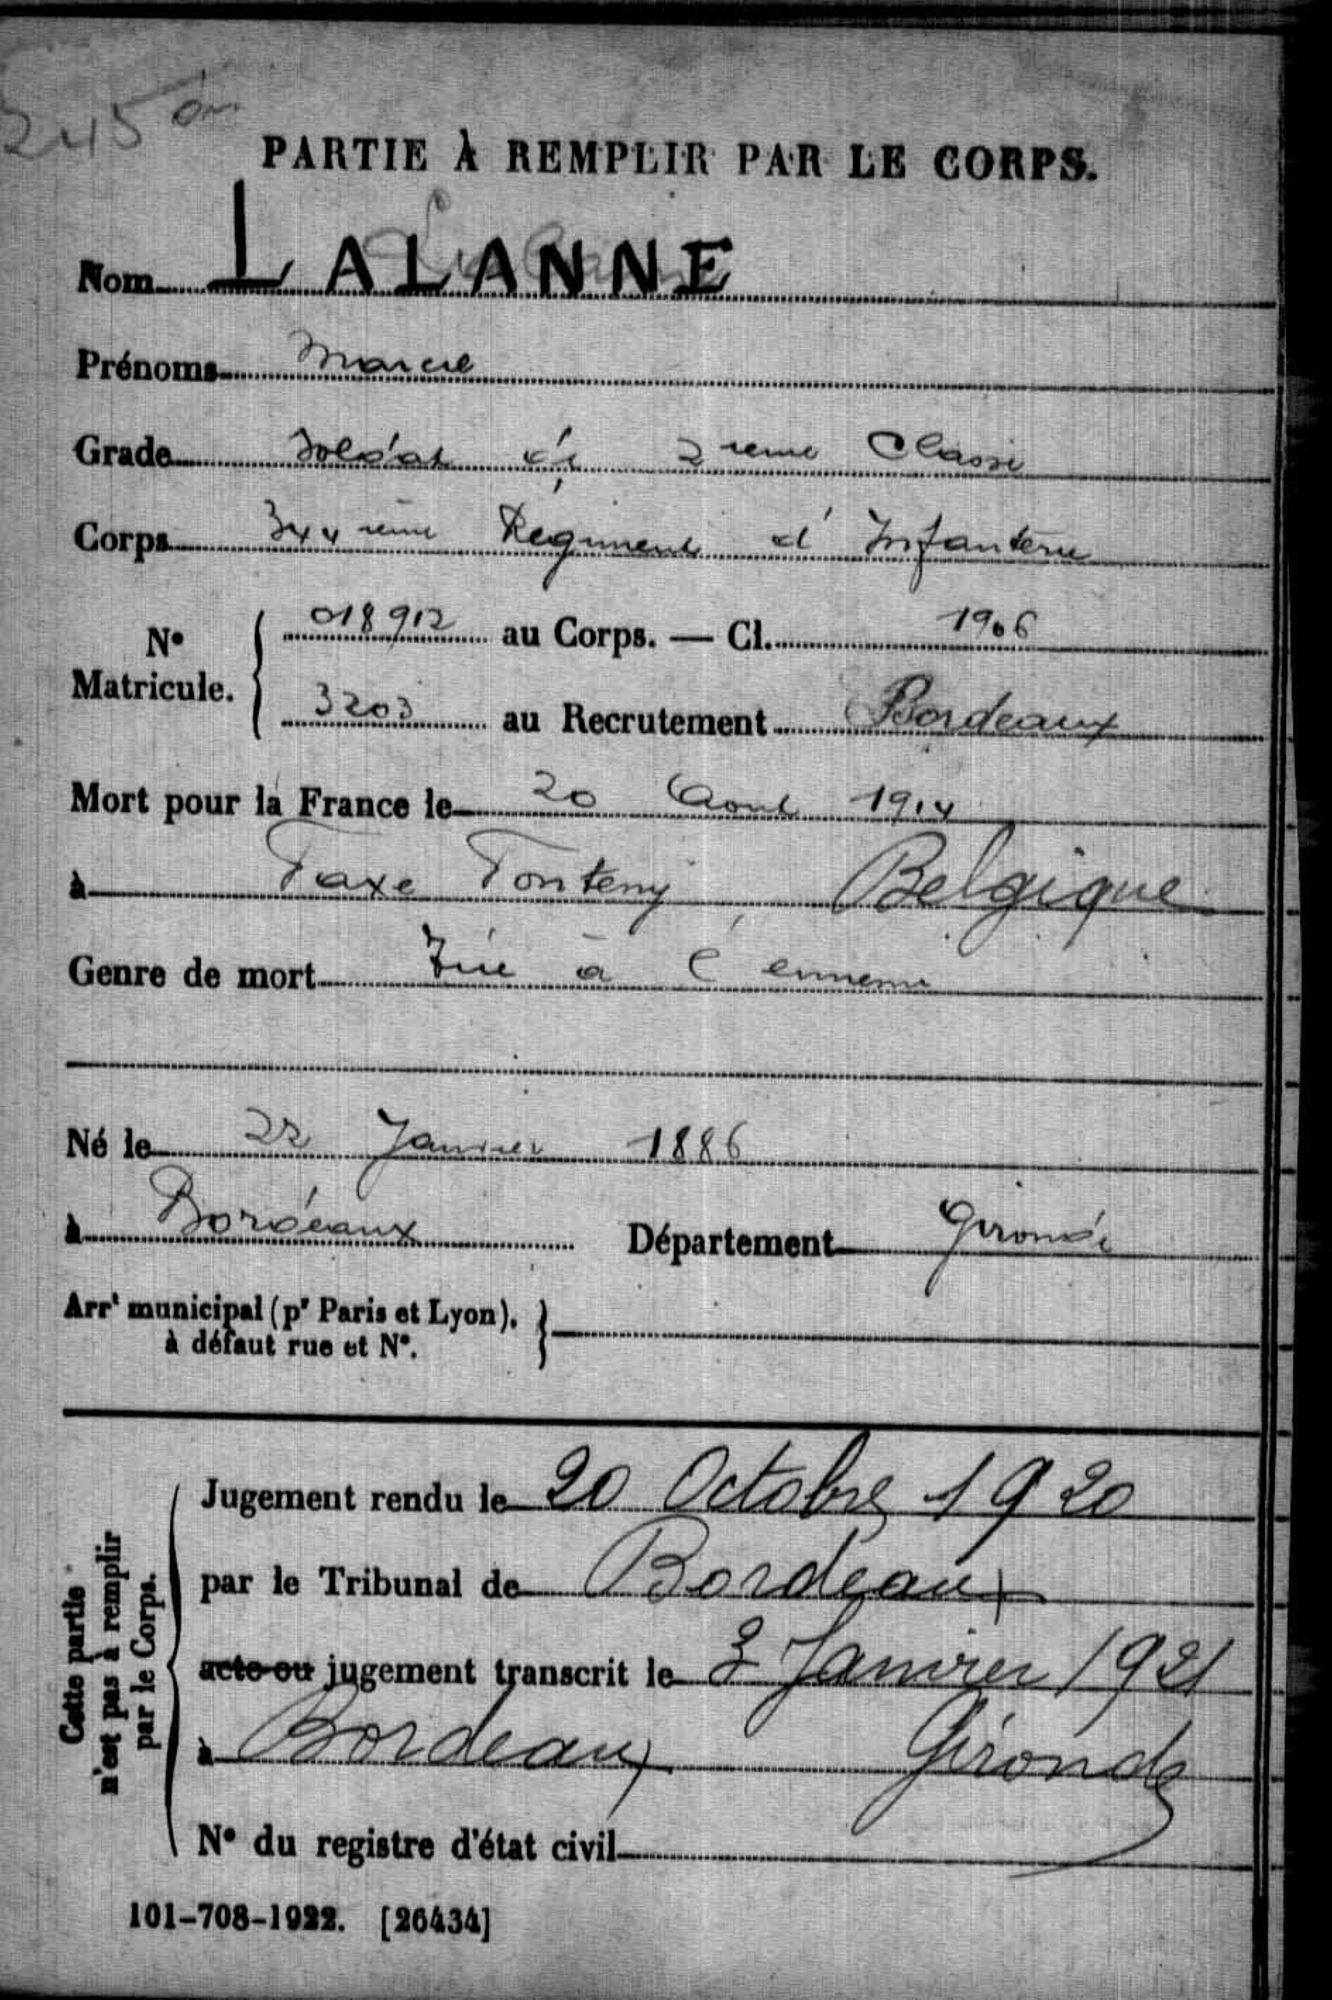 245
PARTIE À REMPLIR PAR LE CORPS.
Nom LALANNE
Prénoms Marcel
Grade Soldat de 2ieme Classe
Corps 344ième Régiment d'Infanterie
N° Matricule. 018912 au Corps. — Cl. 1906
3203 au Recrutement Bordeaux
Mort pour la France le 20 Aout 1914
à Faxe Fonteny Belgique
Genre de mort Tué à l'ennemi
Né le 22 Janvier 1886
à Bordeaux Département Gironde
Arrt municipal (pr Paris et Lyon),
à défaut rue et N°.
Cette partie n'est pas à remplir par le Corps.
Jugement rendu le 20 Octobre 1920
par le Tribunal de Bordeaux
acte ou jugement transcrit le 3 Janvier 1921
à Bordeaux Gironde
N° du registre d'état civil
101-708-1922. [26434]